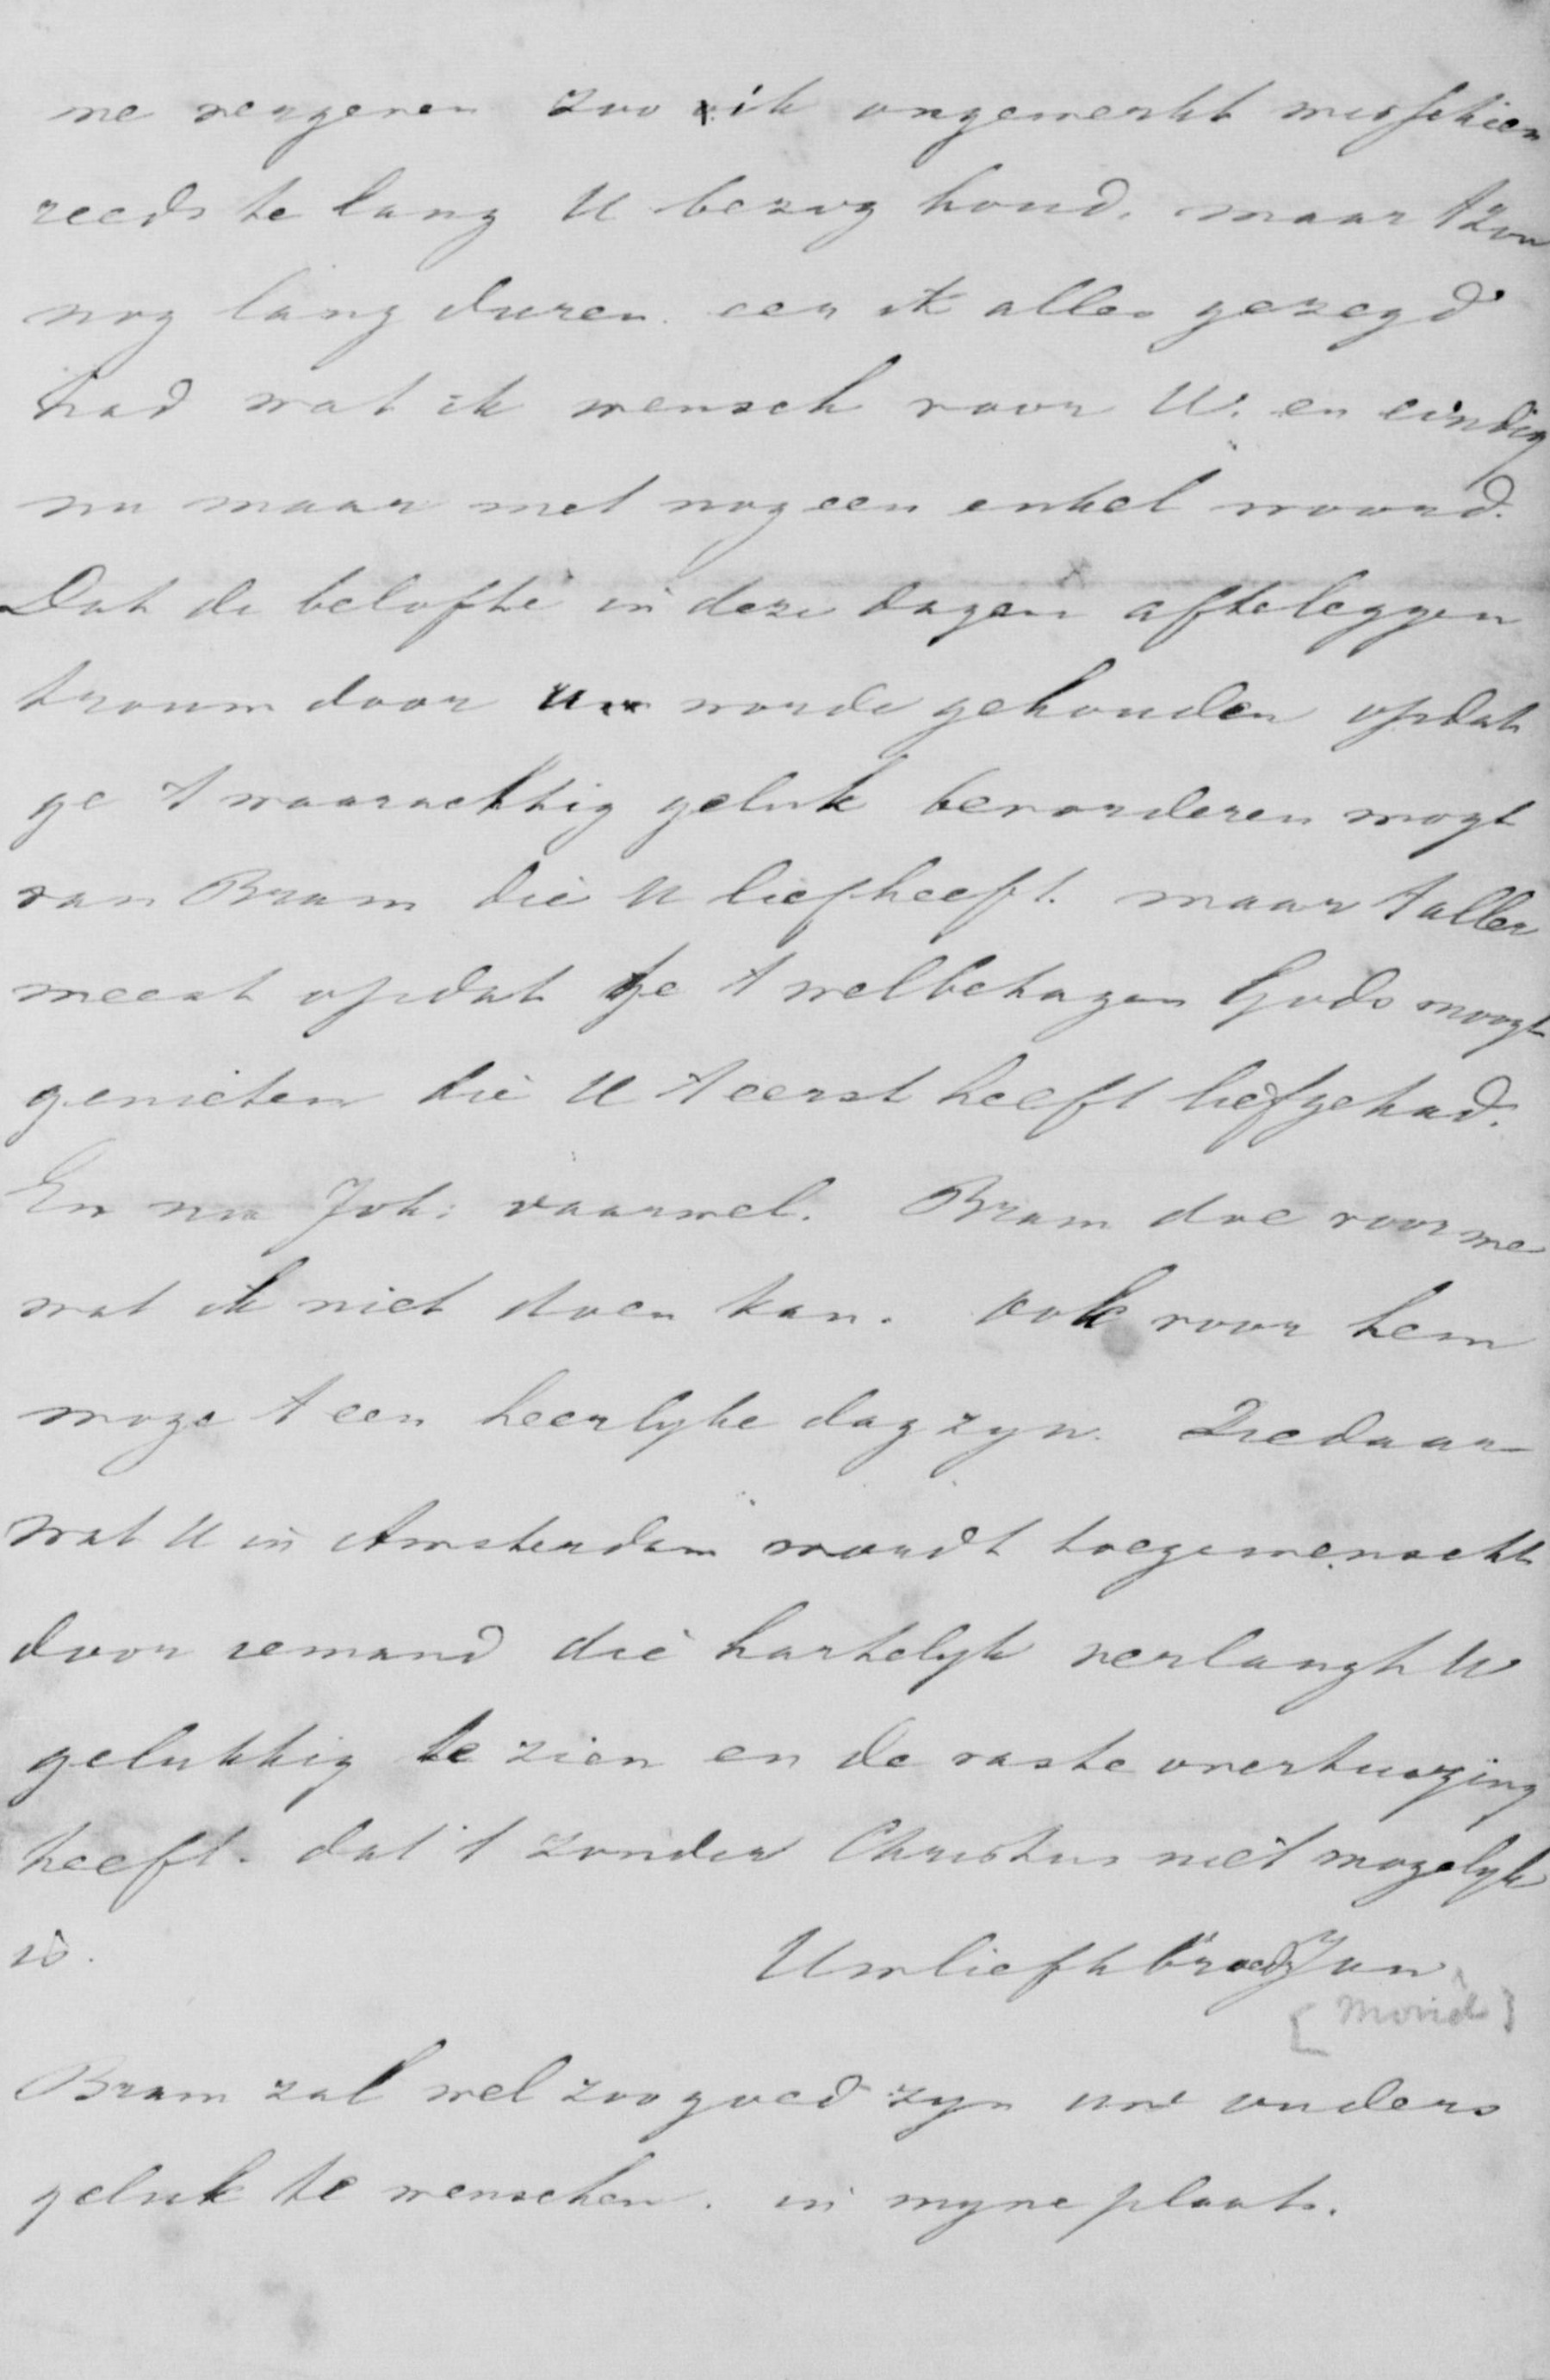 me vergeven zoo ik ongemerkt misschien
reeds te lang U bezig houd, maar t zou
nog lang duren eer ik alles gezegd
had wat ik wensch voor U. en eindig
nu maar met nog een enkel woord.
Dat de belofte in deze dagen afteleggen
trouw door U worde gehouden opdat
ge t waarachtig geluk bevorderen mogt
van Bram die U liefheeft. maar t aller
meest opdat ge t welbehagen Gods moogt
genieten die U t eerst heeft liefgehad.
En nu Joh: vaarwel. Bram doe voor me
wat ik niet doen kan. ook voor hem
moge t een heerlyke dag zyn. Ziedaar
wat U in Amsterdam wordt toegewenscht
door iemand die hartelyk verlangt U
gelukkig te zien en de vaste overtuiging
heeft. dat t zonder Christus niet mogelyk
is.
Uw liefh broedr Jan
Bram zal wel zoo goed zyn uw ouders
geluk te wenschen. in myne plaats.